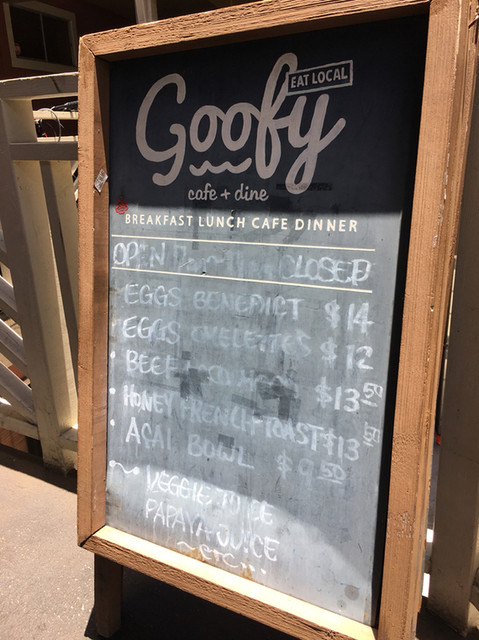 EAT LOCAL
Goofy
cafe + dine
BREAKFAST LUNCH CAFE DINNER
OPEN CLOSED
EGGS BENEDICT $14
EGGS OMELETTES $12
• BEEF $13.50
• HONEY FRENCH TOAST $13.50
• AÇAI BOWL $9.50
~ VEGGIE JUICE
PAPAYA JUICE
~ETC...